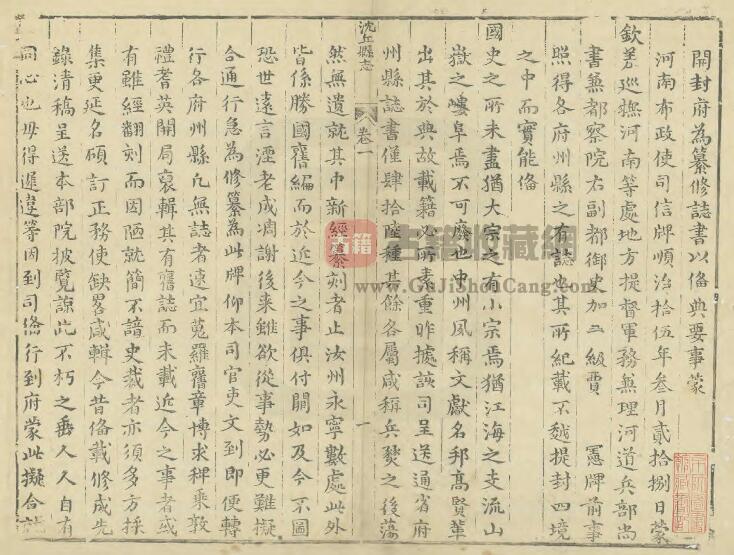 開封府為纂修誌書以備典要事蒙
河南布政使司信牌順治拾伍年叁月貳拾捌日蒙
欽差巡撫河南等處地方提督軍務兼理河道兵部尚
書兼都察院右副都御史加二級賈 憲牌前事
照得各府州縣之有誌也其所紀載不越提封四境
之中而實能備
國史之所未盡猶大宗之有小宗焉猶江海之支流山
嶽之嶁阜焉不可廢也中州風稱文獻名邦高賢輩
出其於典故載籍必所素重昨據該司呈送通省府
州縣誌書僅肆拾陸種其餘各屬咸稱兵燹之後蕩
沈丘縣志 卷一 一
然無遺就其中新經纂刻者止汝州永寧數處此外
皆係勝國舊編而於近今之事俱付闕如及今不圖
恐世遠言湮老成凋謝後來雖欲從事勢必更難擬
合通行急為修纂為此牌仰本司官吏文到即便轉
行各府州縣凡無誌者速宜蒐羅舊章博求稗乘敦
禮耆英開局裒輯其有舊誌而未載近今之事者或
有雖經翻刻而因陋就簡不諳史裁者亦須多方採
集更延名碩訂正務使缺畧咸輯今昔備載修成先
錄清稿呈送本部院披覽諒此不朽之垂人人自有
同心也毋得遲違等因到司備行到府蒙此擬合就
古籍收藏網
www.GuJiShouCang.com